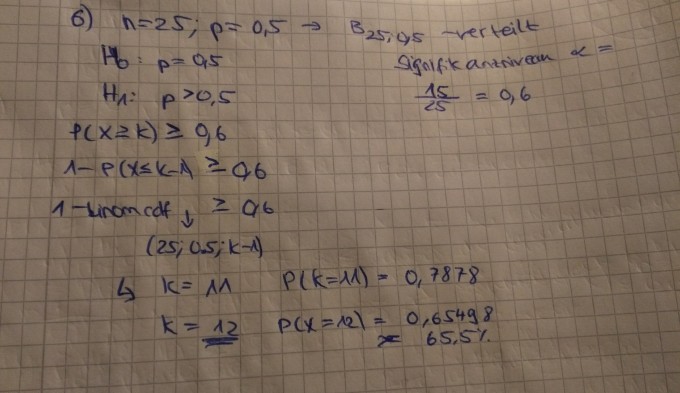 6) n=25; p=0,5 → B25;0,5 -verteilt
H0: p=0,5
Signifikanzniveau α =
15/25 = 0,6
H1: p>0,5
P(X≥k) ≥ 0,6
1-P(X≤k-1) ≥ 0,6
1-binomcdf ↓ ≥ 0,6
(25; 0.5; k-1)
↳ k= 11 P(k=11) = 0,7878
k = 12 P(X=12) = 0,65498
≈ 65,5%